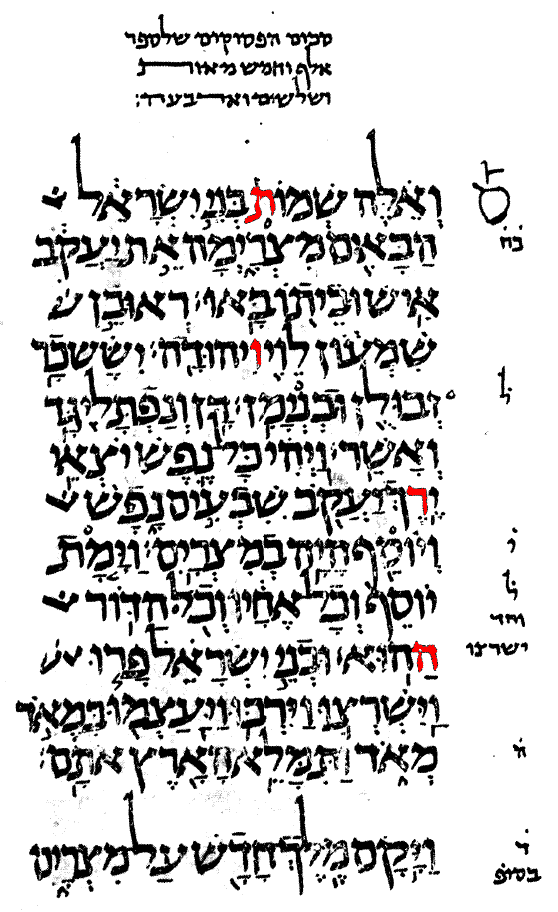 סכום הפסוקים שלספר
אלף וחמש מאות
ושלשים וארבעה:
וְאֵלֶּה שְׁמוֹת בְּנֵי יִשְׂרָאֵל
הַבָּאִים מִצְרָיְמָה אֵת יַעֲקֹב
אִישׁ וּבֵיתוֹ בָּאוּ׃ רְאוּבֵן ש
שִׁמְעוֹן לֵוִי וִיהוּדָה׃ יִשָּׂשכָר
זְבוּלֻן וּבִנְיָמִן׃ דָּן וְנַפְתָּלִי גָּד
ל
וְאָשֵׁר׃ וַיְהִי כָּל נֶפֶשׁ יֹצְאֵי
יֶרֶךְ יַעֲקֹב שִׁבְעִים נָפֶשׁ
וְיוֹסֵף הָיָה בְמִצְרָיִם׃ וַיָּמָת
י
יוֹסֵף וְכָל אֶחָיו וְכֹל הַדּוֹר
ל
וחד
הַהוּא׃ וּבְנֵי יִשְׂרָאֵל פָּרוּ וי
ישרצו
וַיִּשְׁרְצוּ וַיִּרְבּוּ וַיַּעַצְמוּ בִּמְאֹד
מְאֹד וַתִּמָּלֵא הָאָרֶץ אֹתָם׃
וַיָּקָם מֶלֶךְ חָדָשׁ עַל מִצְרָיִם
ד
בסופ